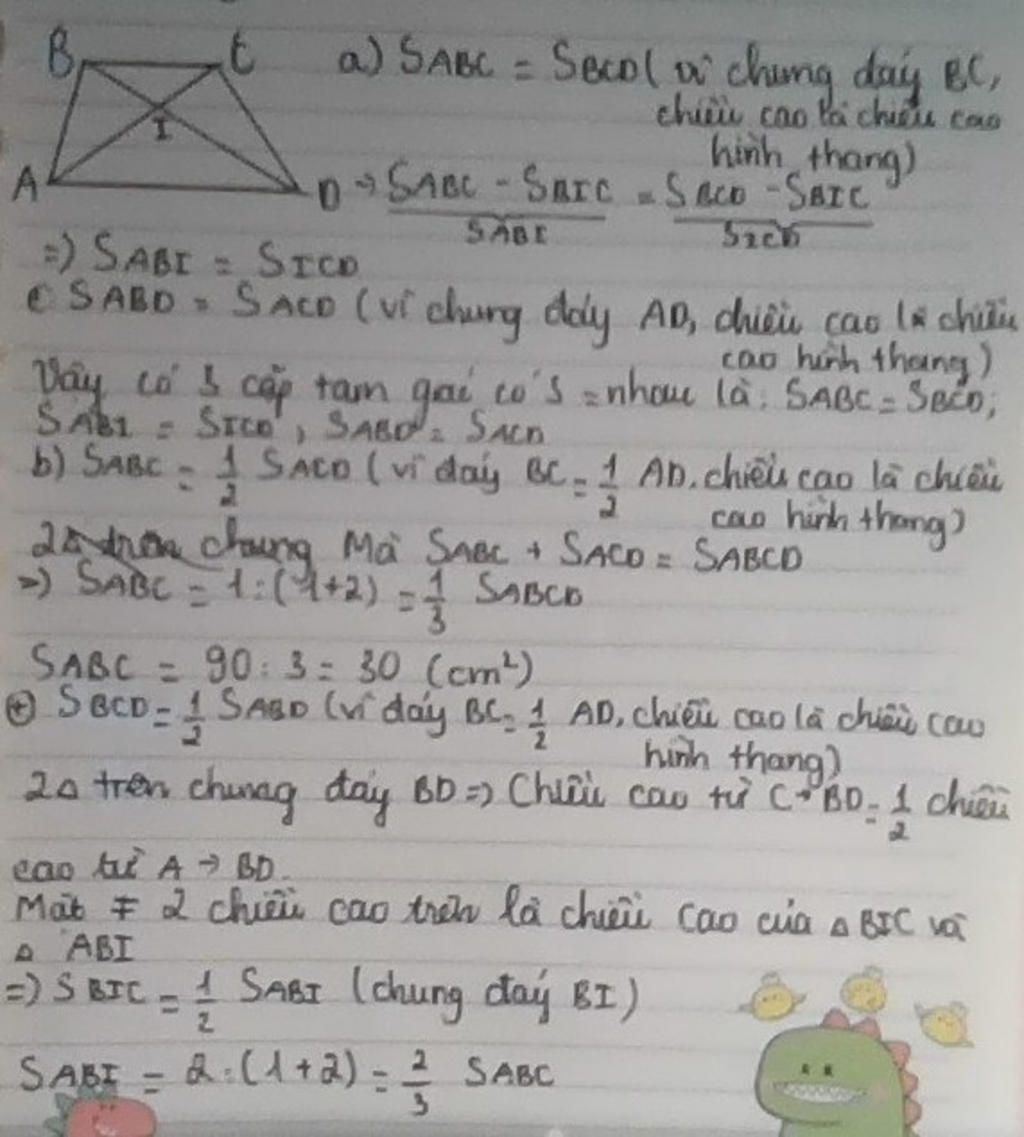 B C a) SABC = SBCD ( vì chung đáy BC,
chiều cao là chiều cao
hình thang)
I
A D => SABC - SBIC = SBCD - SBIC
SABI SICD
=> SABI = SICD
SABD = SACD (vì chung đáy AD, chiều cao là chiều
cao hình thang)
Vậy có 3 cặp tam gái có S = nhau là: SABC = SBCD;
SABI = SICD, SABD = SACD
b) SABC = 1/2 SACD (vì đáy BC = 1/2 AD, chiều cao là chiều
cao hình thang)
2Δ trên chung Mà SABC + SACD = SABCD
=> SABC = 1 : (1+2) = 1/3 SABCD
SABC = 90 : 3 = 30 (cm²)
⊕ SBCD = 1/2 SABD (vì đáy BC = 1/2 AD, chiều cao là chiều cao
hình thang)
2Δ trên chung đáy BD => Chiều cao từ C → BD = 1/2 chiều
cao từ A → BD.
Mặt ≠ 2 chiều cao trên là chiều cao của Δ BIC và
Δ ABI
=> SBIC = 1/2 SABI (chung đáy BI)
SABI = 2 : (1+2) = 2/3 SABC